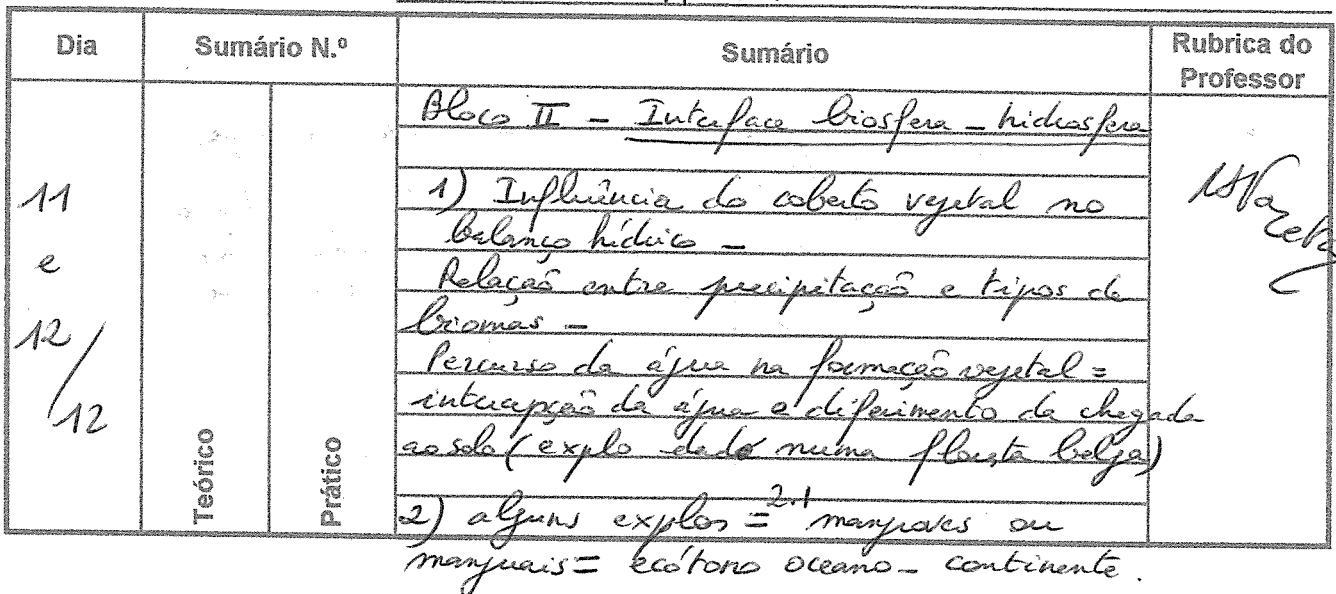 Dia
Sumário N.º
Sumário
Rubrica do
Professor
11
e
12/
12
Teórico
Prático
Bloco II - Interface biosfera - hidrosfera
1) Influência do coberto vegetal no
balanço hídrico -
Relação entre precipitação e tipos de
biomas -
Percurso da água na formação vegetal =
intercepção da água e diferimento da chegada
ao solo (explo dado numa floresta belga)
2) alguns explos = 2.1 mangroves ou
manguais = ecótono oceano - continente.